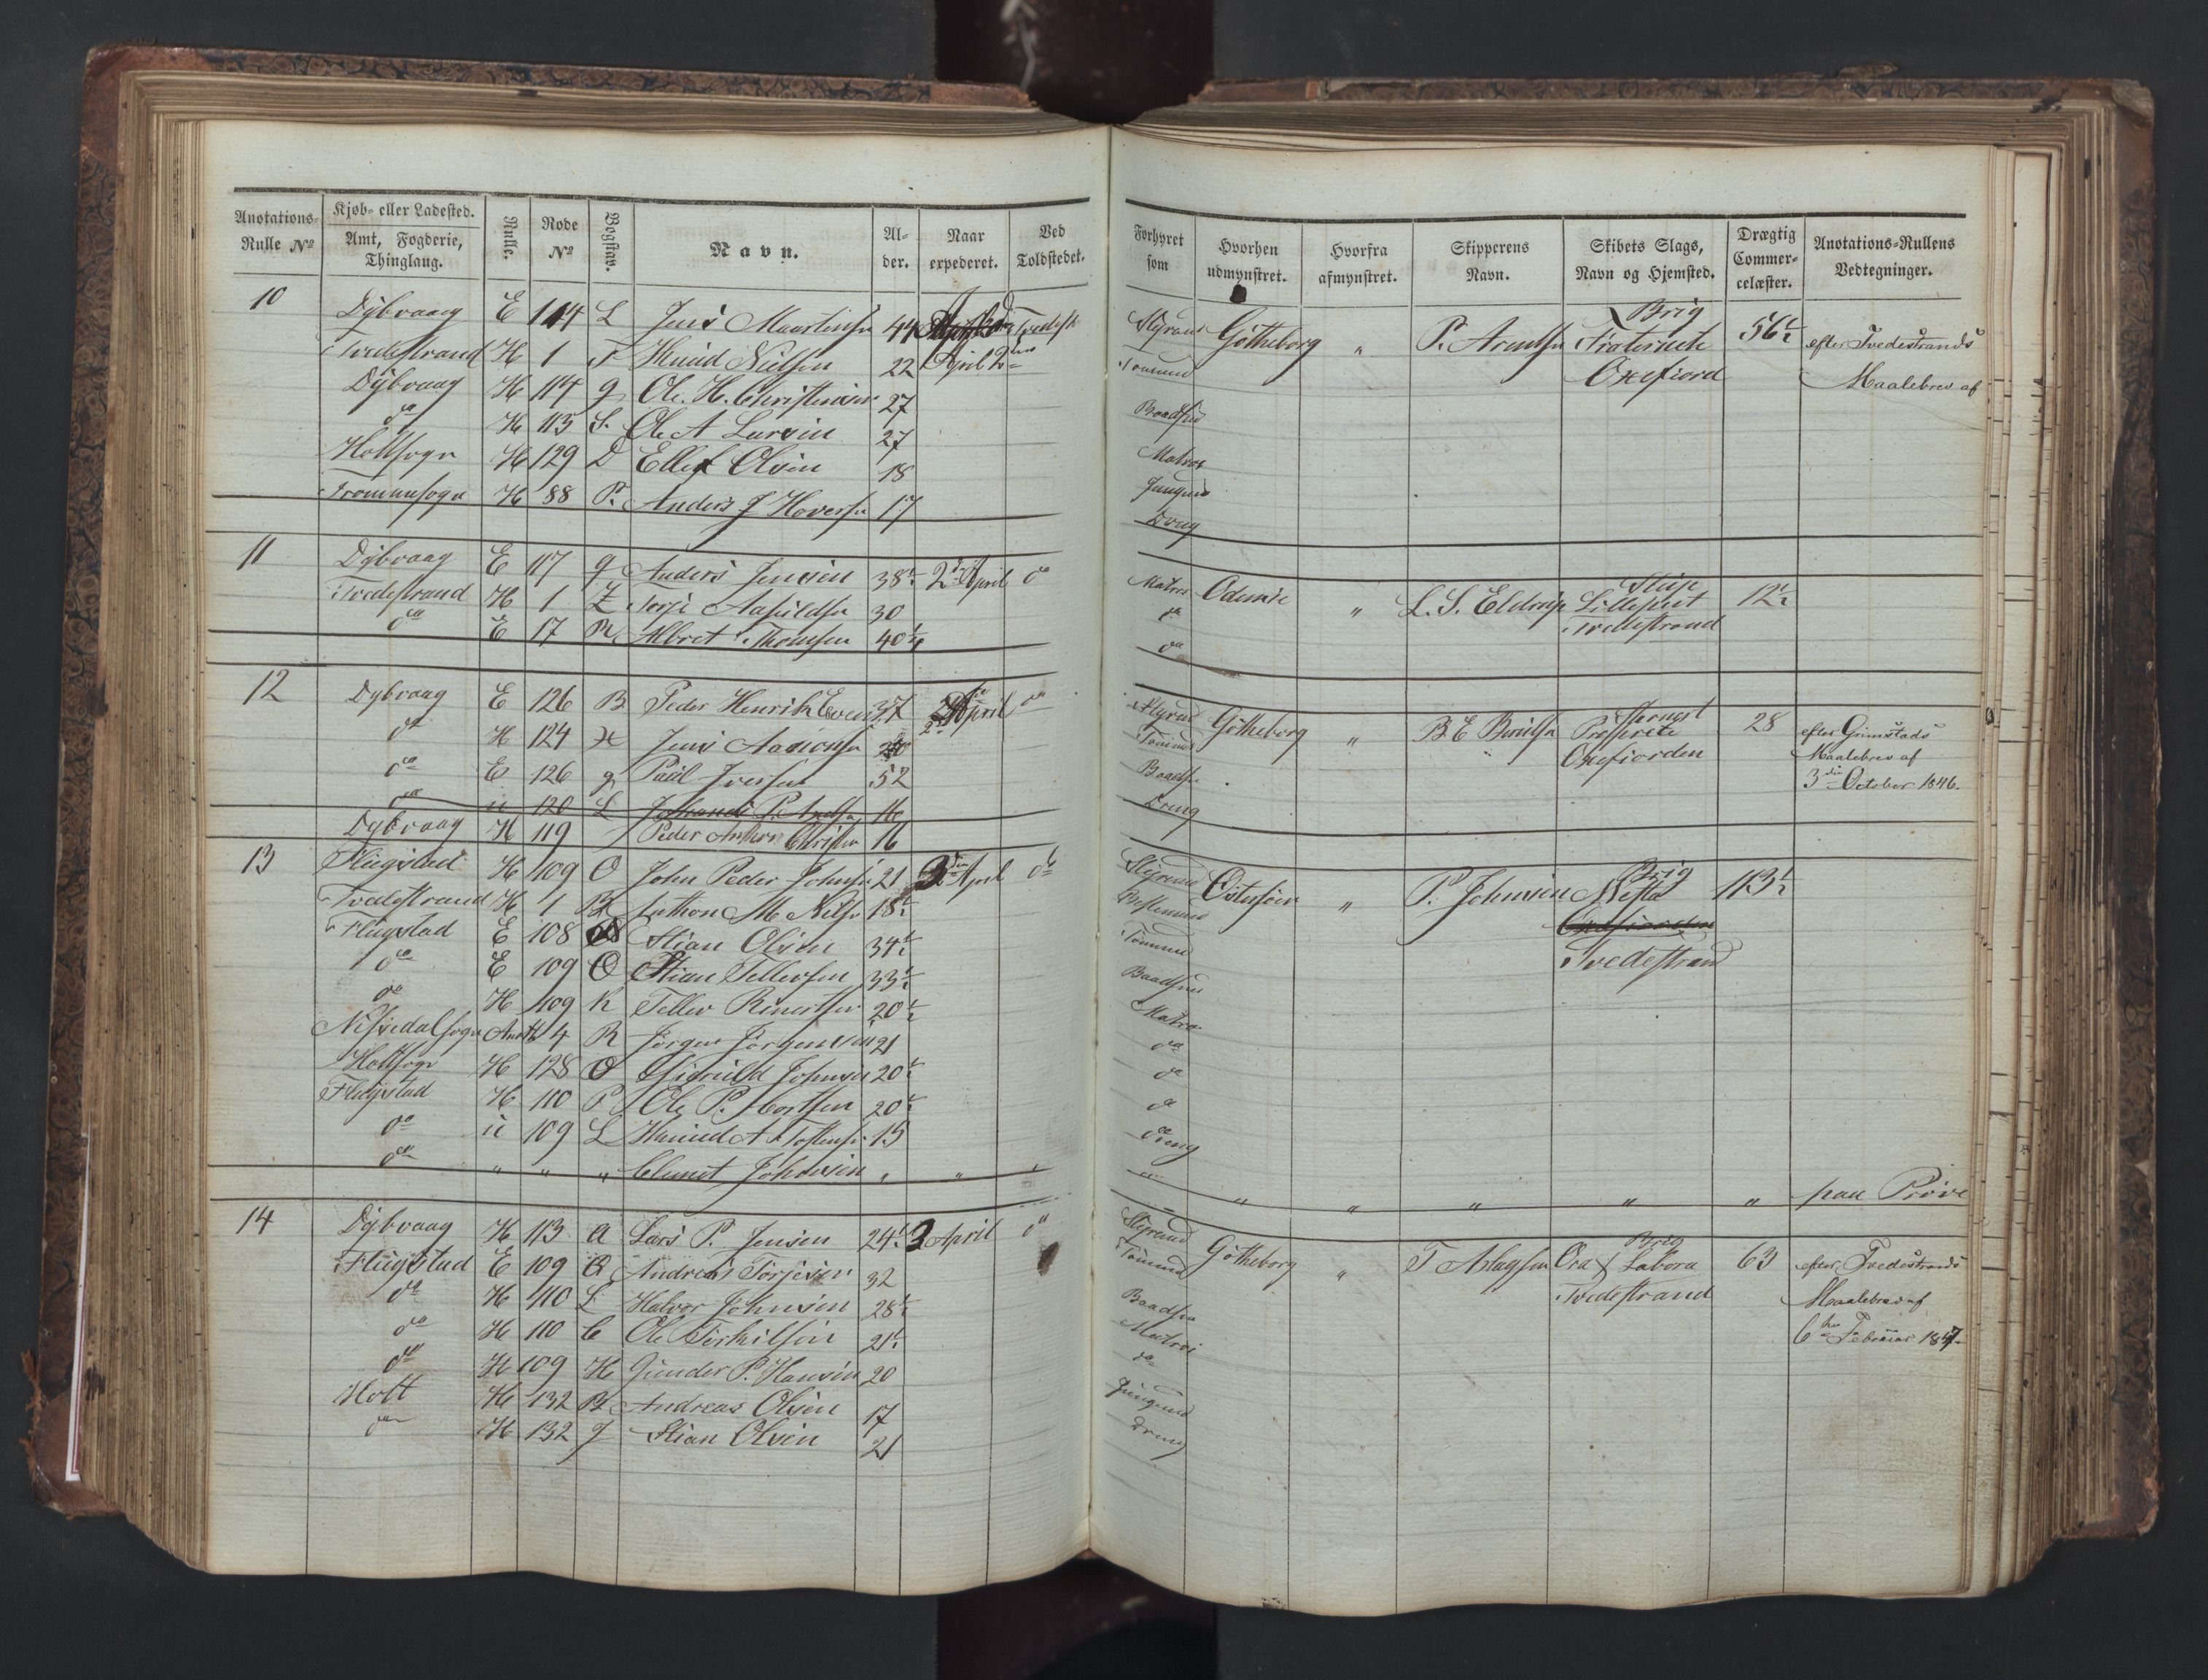 Anotations- Rulle No
Kjøb- eller Ladested. Amt, Fogderie, Thinglaug.
Rulle.
Rode No
Bogstav.
Navn.
Al- der.
Naar expederet.
Ved Toldstedet.
10 Dybvaag E 114 L Jens Maartensen 44 Tvedest
Tvedestrand H 1 F Knud Nielsen 22 April 2den
Dybvaag H 114 g Ole H. Christensen 27
do H 113 S. Ole A Larsen 27
Holtsogn H 129 D Ellef Olsen 18
Tromøsogn H 88 P. Anders J Hoversen 17
11 Dybvaag E 117 g Anders Jensen 38½ 2den April do
Tvedestrand H 1 Z Torje Aasildsen 30
do E 17 Albret Thomsen 40
12 Dybvaag E 126 B Peder Henrik Evensen 37 2den April do
do H 124 H Jens Aanonsen 20
do E 126 g Paul Iversen 52
do 120 L P. 16
Dybvaag H 119 Peder Anthon Christen 16
13 Flugstad H 109 O John Peder Johnsen 21 3die April do
Tvedestrand H 1 Anthon M Nilsen 18½
Flugstad E 108 Stian Olsen 34½
do E 109 O Stian Tellefsen 33½
do H 109 K Tellev Reiersen 20½
Nissedal sogn 4 R Jörgen Jörgensen 21
Holtsogn H 128 O Johnsen 20½
Flugstad H 110 P Ole P. 20½
do " 109 L A Tostensen 15
do " " " Clemet Johnsen " " "
14 Dybvaag H 113 a Lars P. Jensen 24½ 3 April do
Flugstad E 109 Andreas Torjesen 32
do H 110 L Halvor Johnsen 28½
do H 110 C Ole Terkilsen 21½
do H 109 H Gunder P. Hansen 20
Holt H 132 B Andreas Olsen 17
do H 132 J Stian Olsen 21
Forhyret som
Hvorhen udmynstret.
Hvorfra afmynstret.
Skipperens Navn.
Skibets Slags, Navn og Hjemsted.
Drægtig Commer- celæster.
Anotations-Rullens Vedtegninger.
Brig
Styrmd Götheborg " P. Arentsen Fraternite 56½ efter Tvedestrands
Tömmd Oxefiord Maalebrev af
Baadsmd
Matros
Jungmd
Dreng
Slup
Matros Odense " L. S. Eldrup Lilleput 12½
do Tvedestrand
do
Styrmd Götheborg " B E Bersilsen 28 efter Grimstads
Tömmd Oxefiorden Maalebrev af
Baadsm 3die October 1846.
Dreng
Brig
Styrmd Östersöen " P. Johnsen 113½
Bestemnd Oxefiorden
Tömmd Tvedestrand
Baadsmd
Matros
do
do
do
Dreng
" " " " " " paa Pröve
Brig
Styrmd Götheborg " T Aslagsen Ora & Labora 63 efter Tvedestrands
Tömmd Tvedestrand Maalebrev af
Baadsm 6te Februar 1847
Matros
do
Jungmd
Dreng